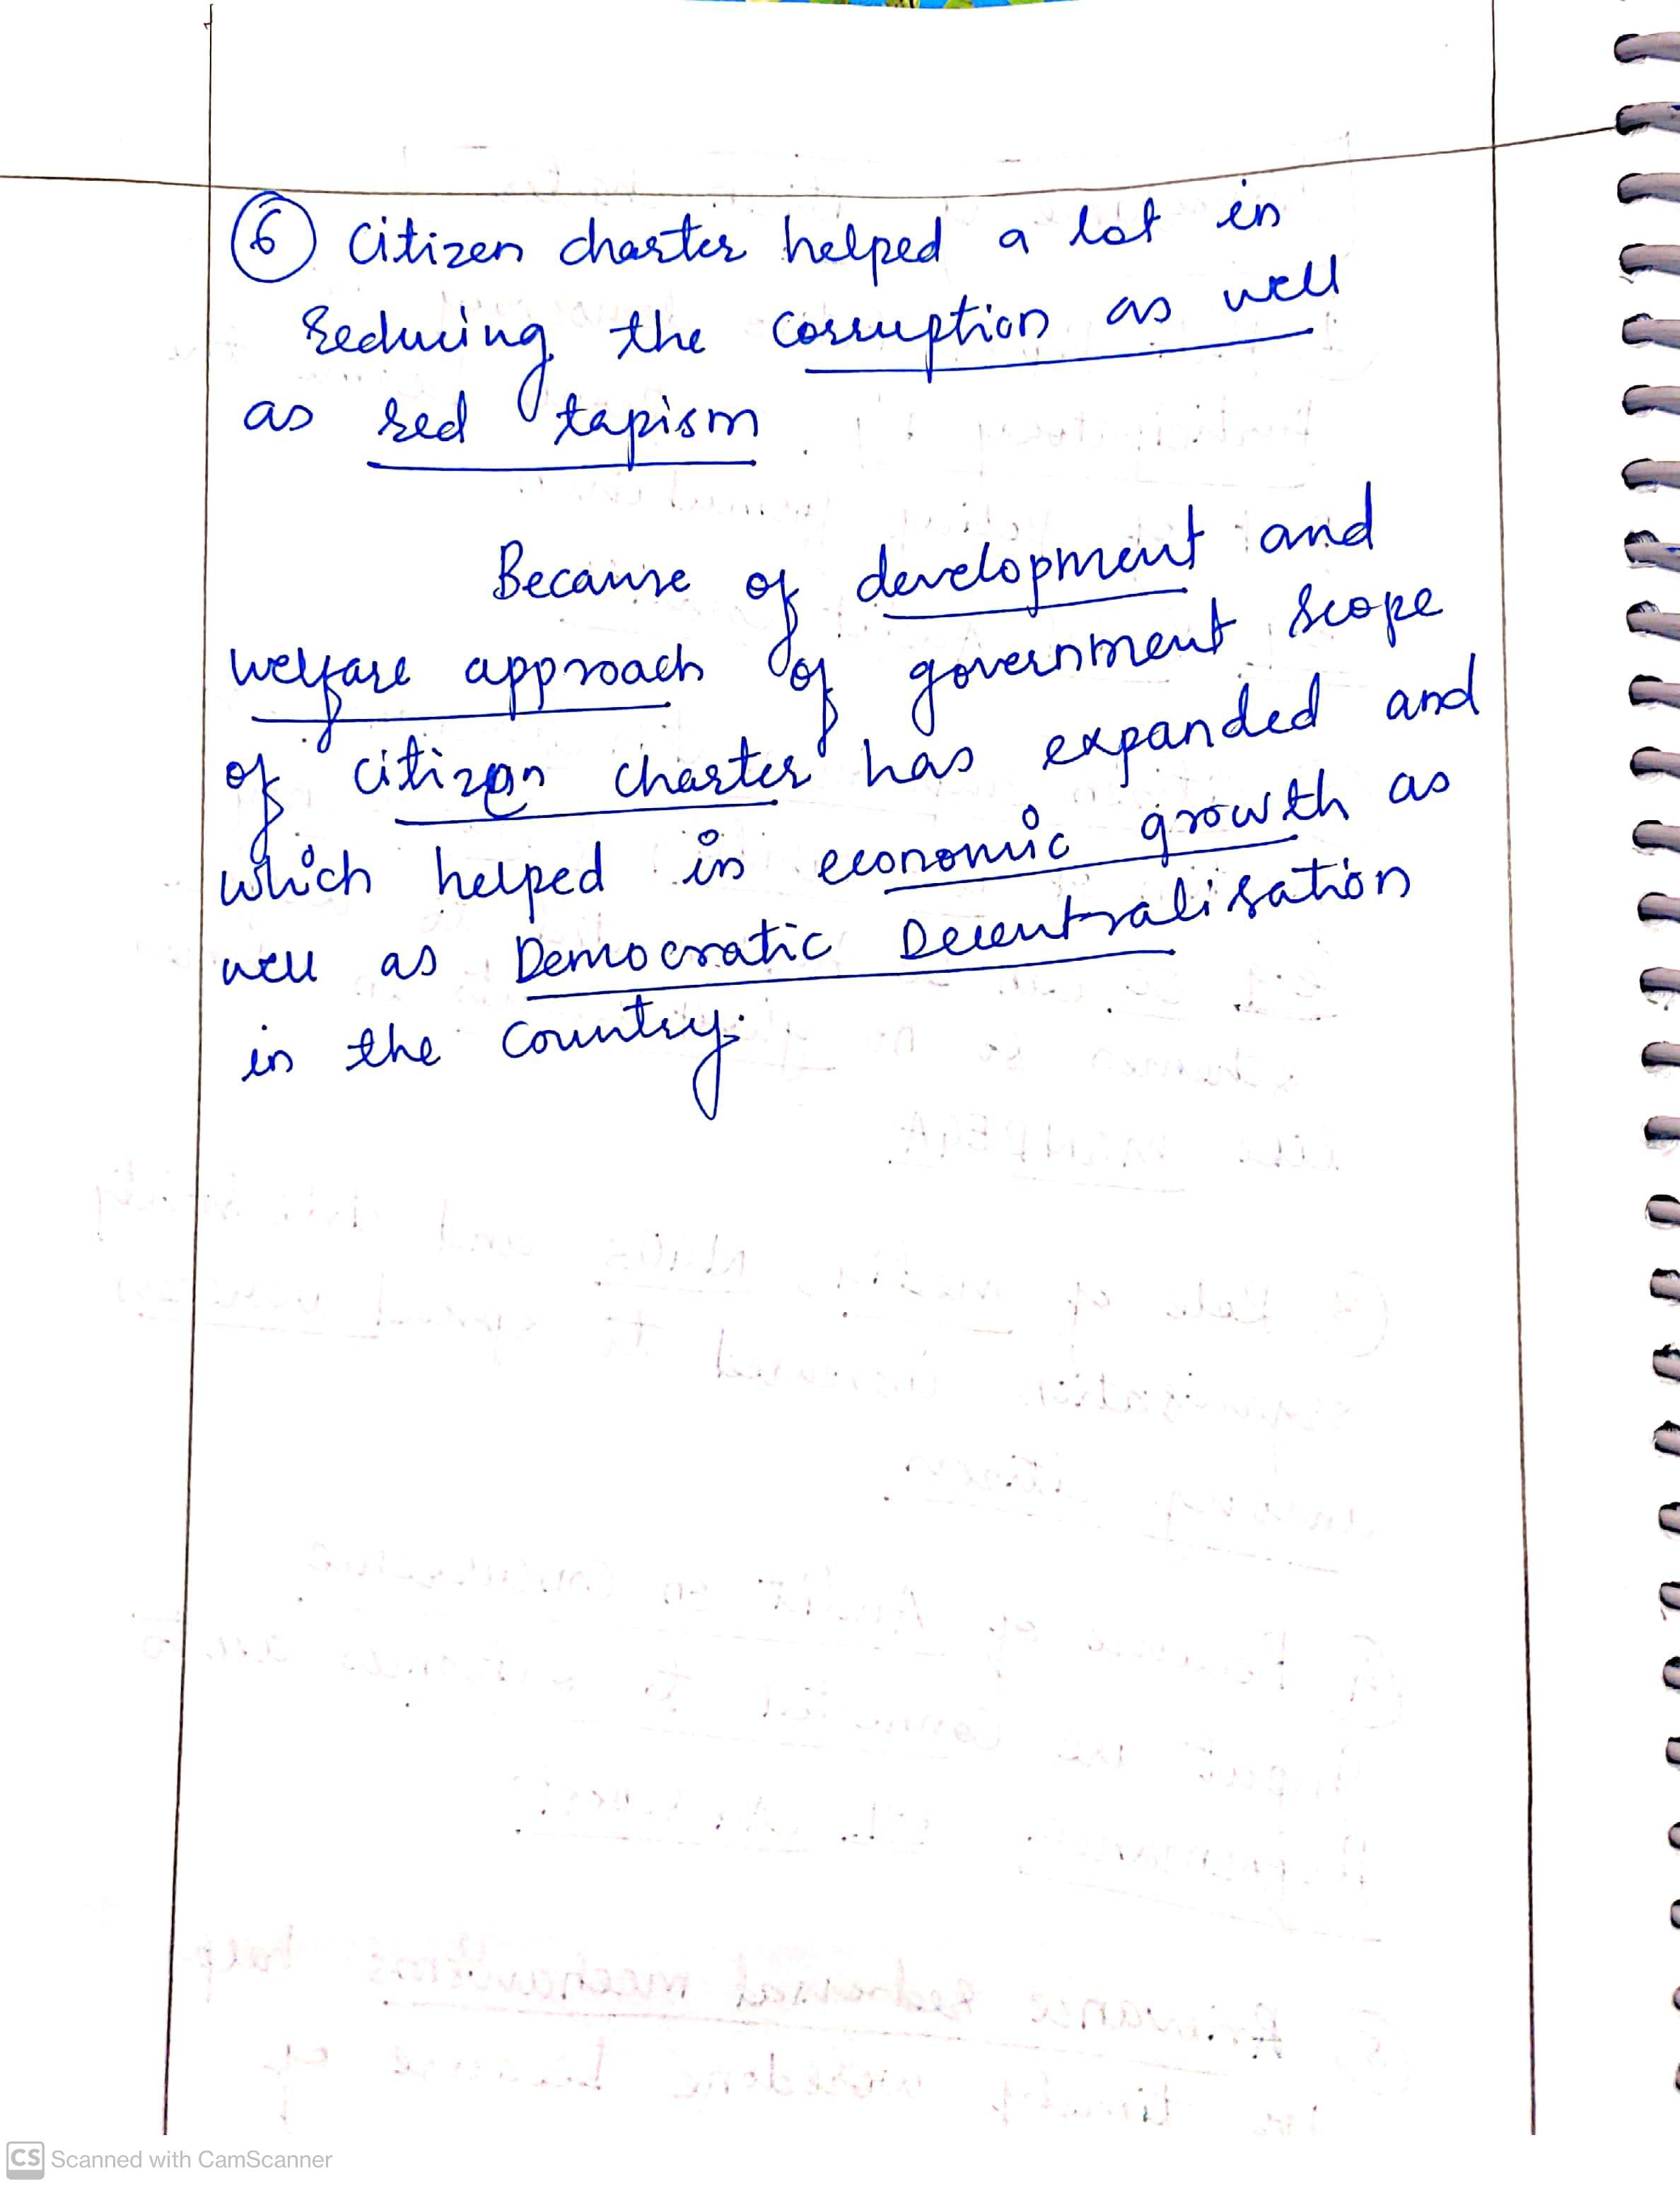 6 Citizen charter helped a lot in
reducing the corruption as well
as red tapism
Because of development and
welfare approach of government scope
of citizen charter has expanded and
which helped in economic growth as
well as Democratic Decentralisation
in the country.
CS Scanned with CamScanner